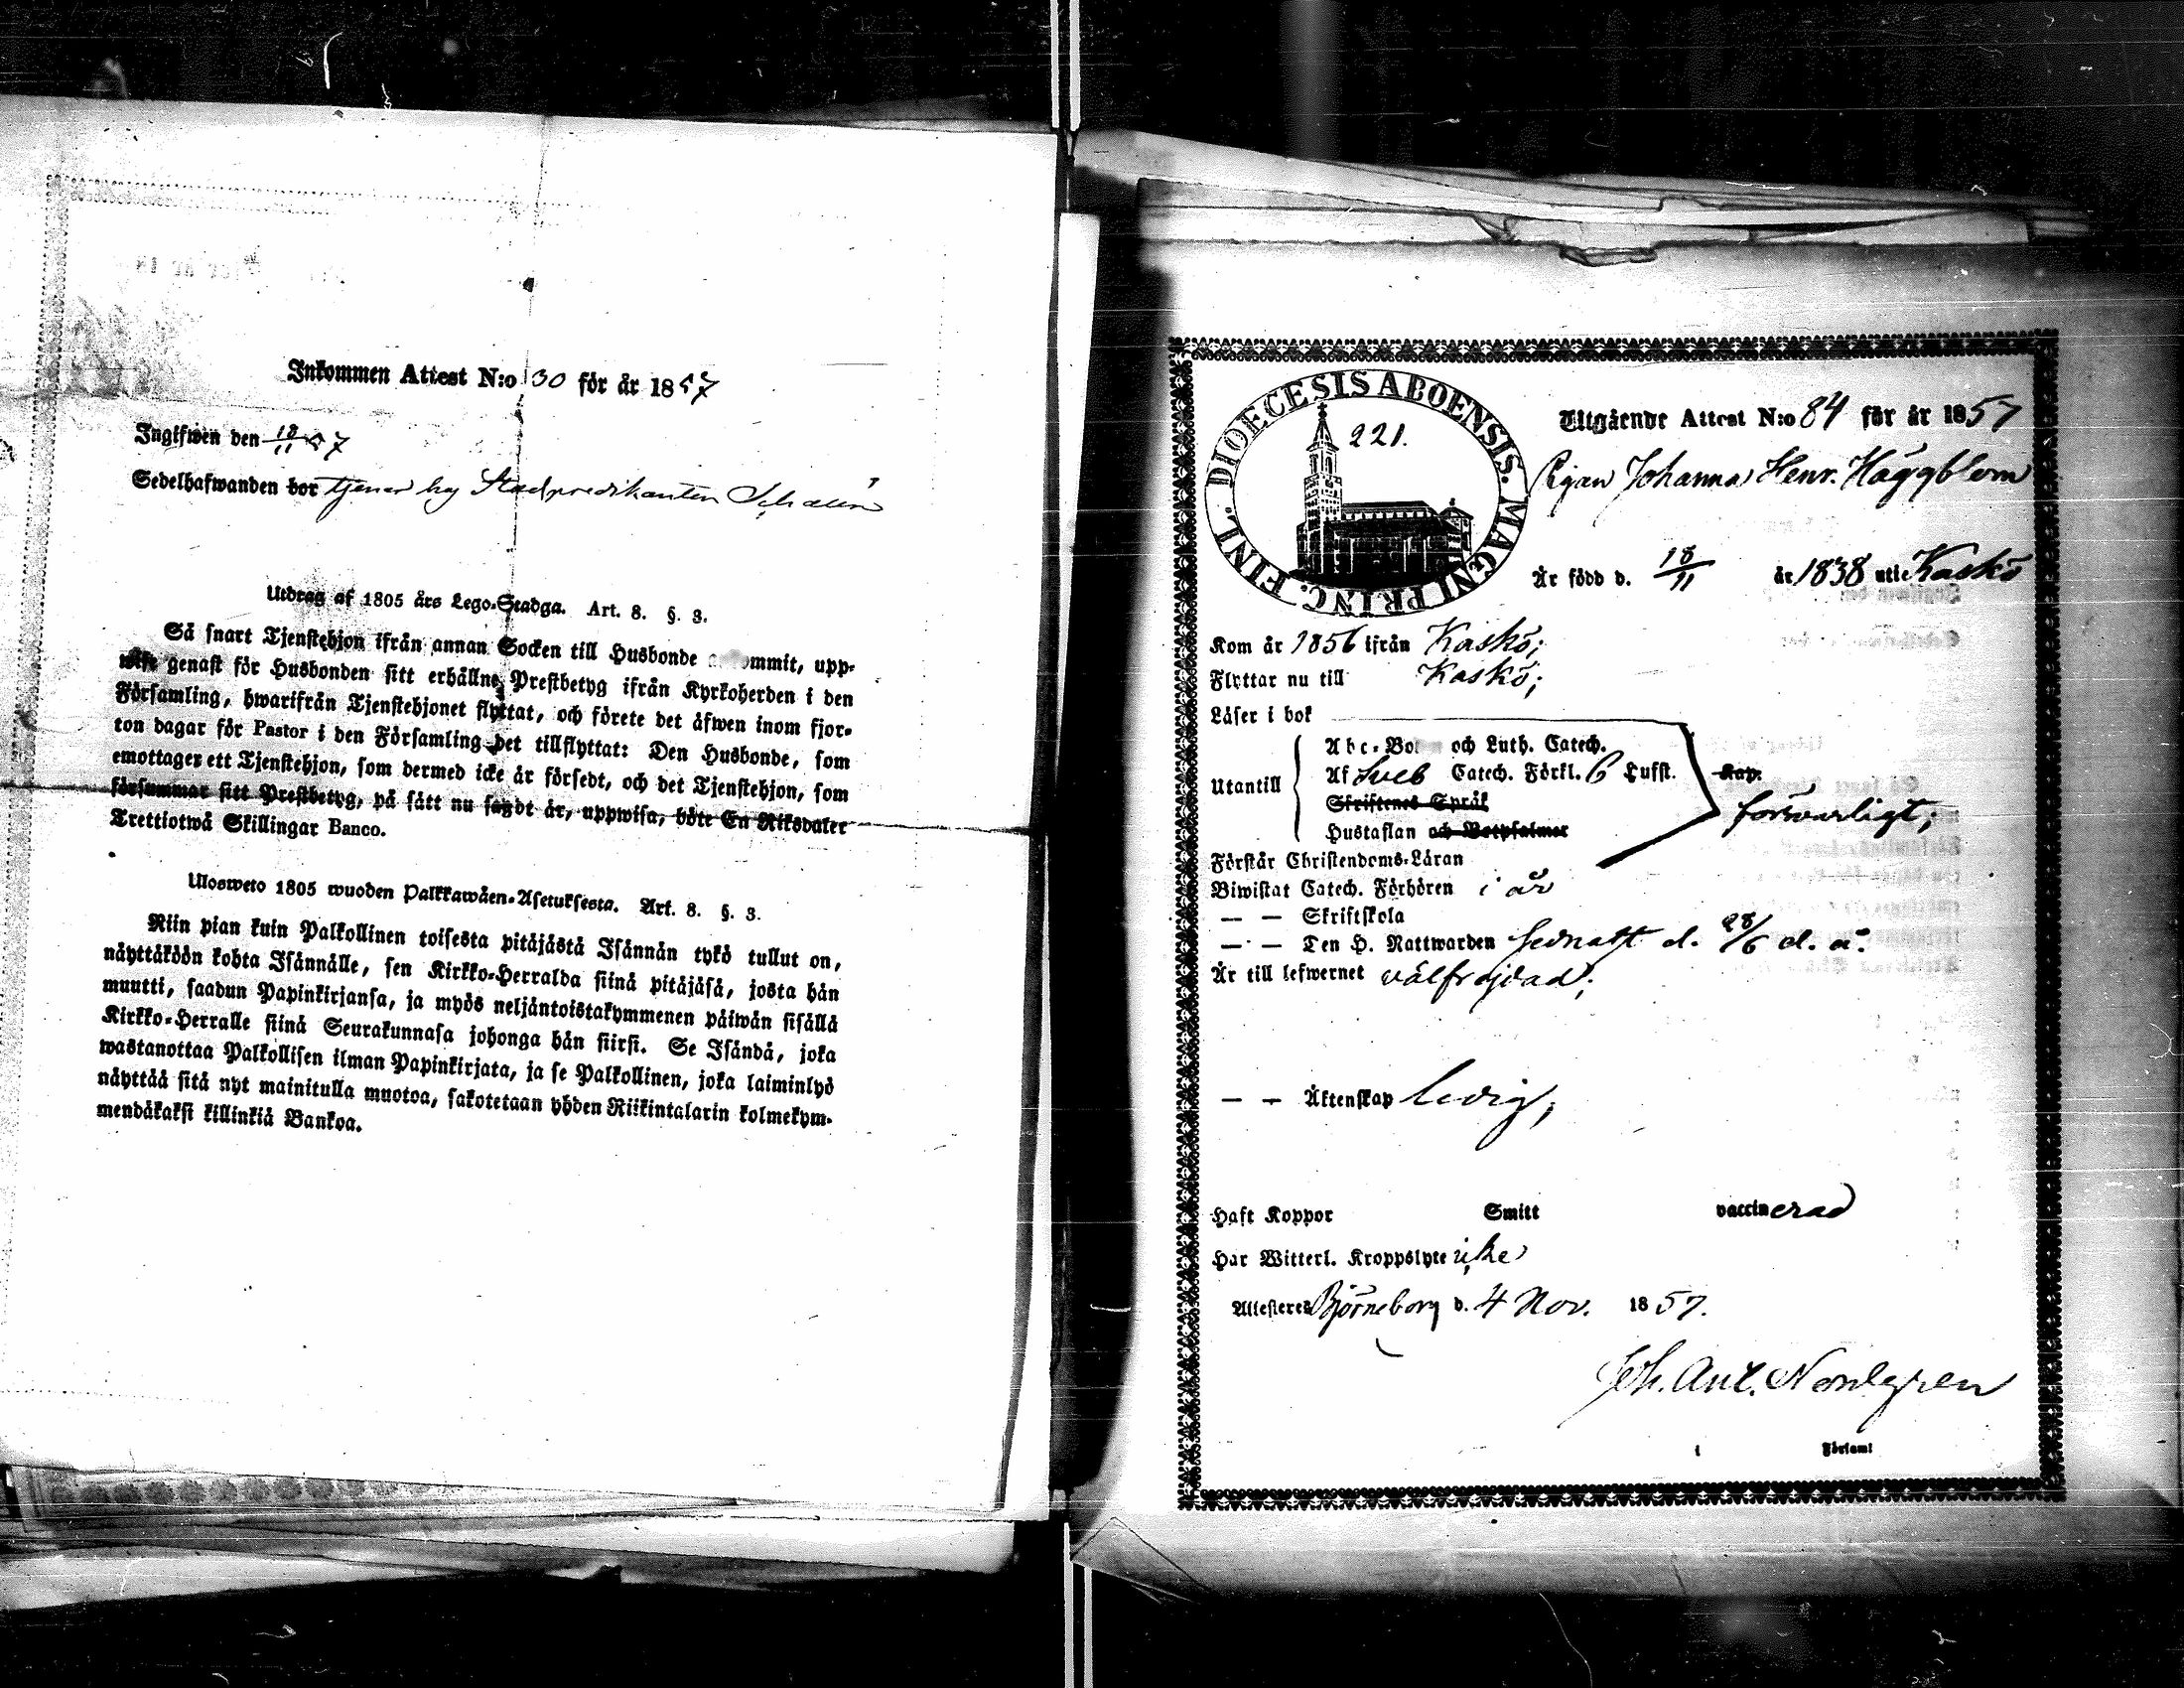 Inkommen Attest N:o 30 för år 1857
Ingifwen den 18/11 57
Sedelhafwanden bor tjenar hos Stadspredikanten
Utdrag af 1805 års Lego-Stadga. Art. 8. §. 3.
Så snart Tjenstehjon ifrån annan Socken till Husbonde ommit, upp-
wise genast för Husbonden sitt erhållne Prestbetyg ifrån Kyrkoherden i den
Församling, hwarifrån Tjenstehjonet flyttat, och förete det äfwen inom fjor-
ton dagar för Pastor i den Församling det tillflyttat: Den Husbonde, som
emottager ett Tjenstehjon, som dermed icke är försedt, och det Tjenstehjon, som
försummar sitt Prestbetyg, på sätt nu sagdt är, uppwisa, böte En Riksdaler
Trettiotwå Skillingar Banco.
Ulosweto 1805 wuoden Palkkawäen-Asetuksesta. Art. 8. §. 3.
Niin pian kuin Palkollinen toisesta pitäjästä Isännän tykö tullut on,
näyttäköön kohta Isännälle, sen Kirkko-Herralda siinä pitäjäsä, josta hän
muutti, saadun Papinkirjansa, ja myös neljäntoistakymmenen päiwän sisällä
Kirkko-Herralle siinä Seurakunnasa johonga hän siirsi. Se Isändä, joka
wastanottaa Palkollisen ilman Papinkirjata, ja se Palkollinen, joka laiminlyö
näyttää sitä nyt mainitulla muotoa, sakotetaan yhden Riikintalarin kolmekym-
mendäkaksi killinkiä Bankoa.
DIOECESIS ABOENSIS. MAGNI PRINC. FINL.
221.
Utgående Attest N:o 84 för år 1857
Pigan Johanna Henr. Häggblom
Är född d. 18/11 år 1838 uti Kaskö
Kom år 1856 ifrån Kaskö;
Flyttar nu till Kaskö;
Läser i bok
Abc-Bok och Luth. Catech.
Utantill Af Sveb Catech. Förkl. 6 Hufst. Kap.
Skriftenes Språk
försvarligt;
Hustaflan och Botpsalmer
Förstår Christendoms-Läran
Biwistat Catech. Förhören i år
— — Skriftskola
— — Den H. Nattwarden sednast d. 28/6 d. å.
Är till lefwernet välfrejdad;
— — Äktenskap ledig;
Haft Koppor Smitt vaccinerad
Har Witterl. Kroppslyte icke
Attesteres Björneborg d. 4 Nov. 1857.
Joh. Ant. Nordgren
i Församl